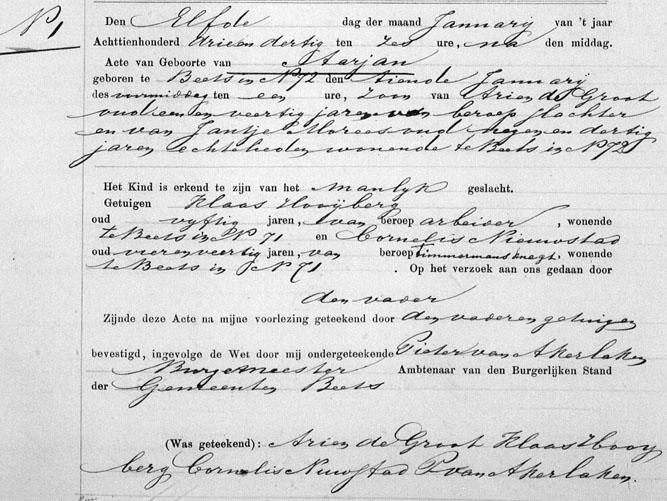 N° 1
Den Elfde dag der maand January van 't jaar
Achttienhonderd drie en dertig ten zes ure, na den middag.
Acte van Geboorte van Aarjan
geboren te Beets in N° 72 den tiende January
des voormiddag ten een ure, zoon van Arien de Groot
oud een en veertig jaren van beroep slachter
en van Jantje Morees oud negen en dertig
jaren echtelieden wonende te Beets in N° 72
Het Kind is erkend te zijn van het manlyk geslacht.
Getuigen Klaas Hooyberg
oud vyftig jaren, van beroep arbeider, wonende
te Beets in N° 71 en Cornelis Nieuwstad
oud vier en veertig jaren, van beroep timmermansknegt, wonende
te Beets in N° 71. Op het verzoek aan ons gedaan door
den vader
Zijnde deze Acte na mijne voorlezing geteekend door den vader en getuigen
bevestigd, ingevolge de Wet door mij ondergeteekende Pieter van Akerlaken
Burgemeester Ambtenaar van den Burgerlijken Stand
der Gemeenten Beets
(Was geteekend): Arien de Groot Klaas Hooy
berg Cornelis Nieuwstad P van Akerlaken.